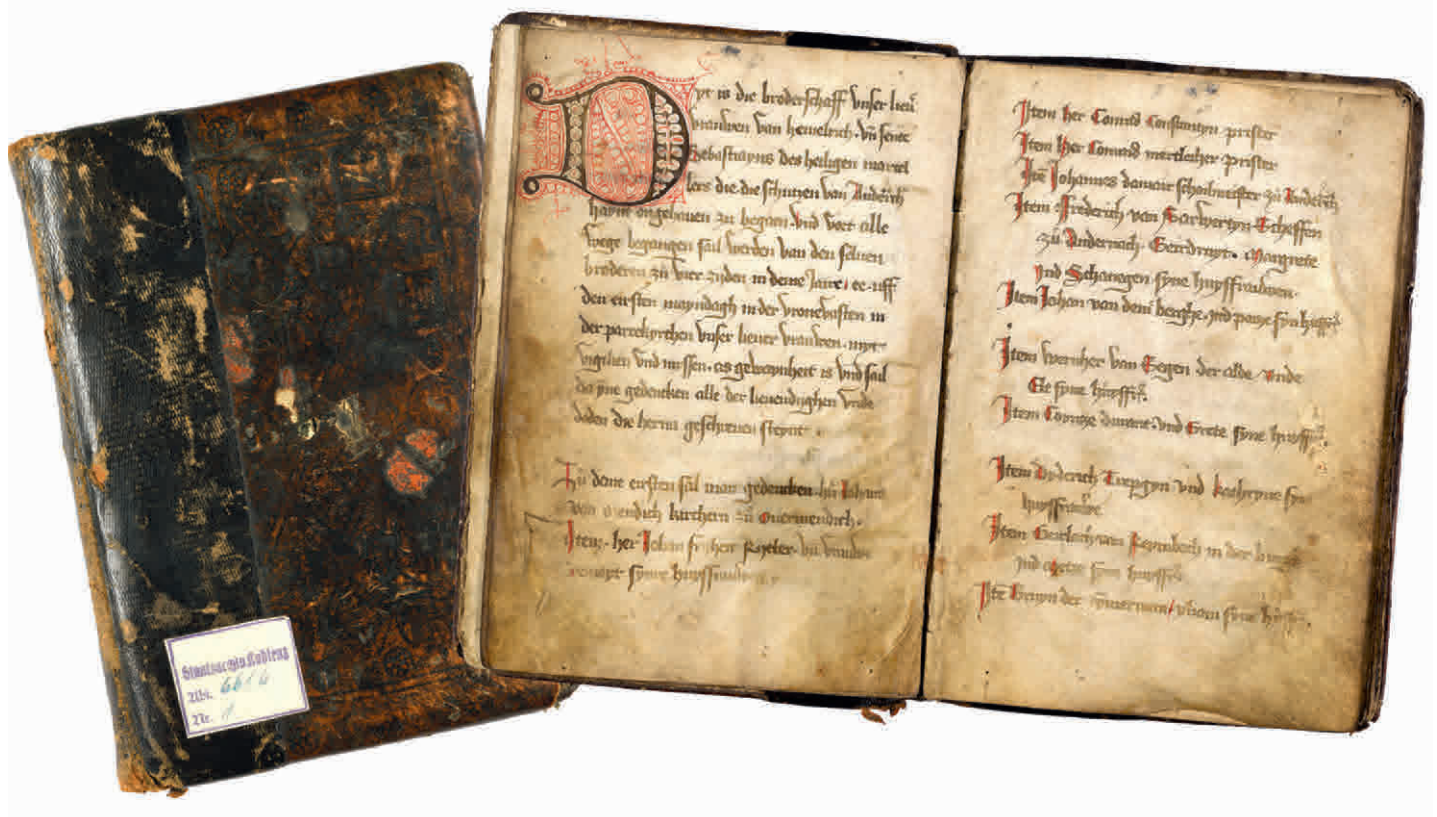 Staatsarchiv Koblenz
Abt.
Nr.
Dyt is die broderschaff vnser lieuer
vrauwen van hemelrich vn̄ sente
Sebastianus des heiligen mertel
lers die die schutzen van Anderñch
haynt angehauen zu begaen vnd vort alle
wege begangen sail werden van den seluen
broderen zu vier zijden in deme Jaire ee uff
den eirsten mayndagh in der vronevasten in
der parrekyrchen vnser lieuer vrauwen myt
vigilien vnd missen as gewoynheit is vnd sail
da yne gedencken alle der lieuendighen vnde
doden die herna geschreuen steynt
Zu deme eirsten sal man gedencken hn̄ Johan
von Mendich kirchern zu Ouermendich
Item her Johan
syne huyssfrauwe
Item her Conrad Constantyn prister
Item her Conrad mertlacher prister
Itē Johannes damair schoilmeister zu Andernach
Item Frederich van Sarwertyn Scheffen
zu Andernach Geirdruyt Margrete
ynd Schanegen syne huyssfrauwen
Item Johan van dem berghe ynd patze syn
Item wernher van Segen der alde vnde
Ele syne huyssfr
Item Contze damant vnd Grete syne huyssfr
Item Dyderich vnd kathryne syn
huyssfrauwe
Item Geirlach van Reymbach in der
ynd Metze syn huyssfr
Itē Bruyn der syne